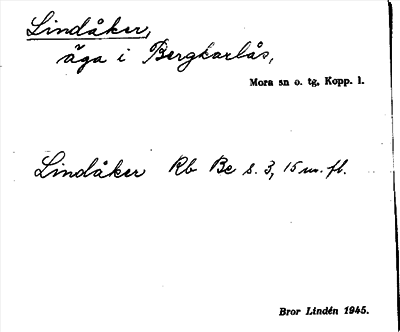 Lindåker,
äga i Bergkarlås,
Mora sn o. tg, Kopp. l.
Lindåker Rb Be s. 3, 15 m. fl.
Bror Lindén 1945.